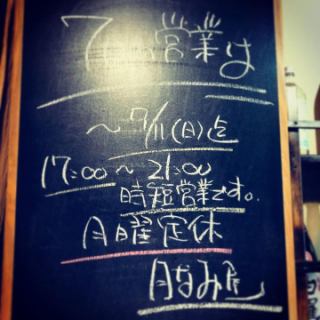 7 営業は
〜7/11(日)迄
17:00〜21:00
時短営業です。
月曜定休
月なみ屋